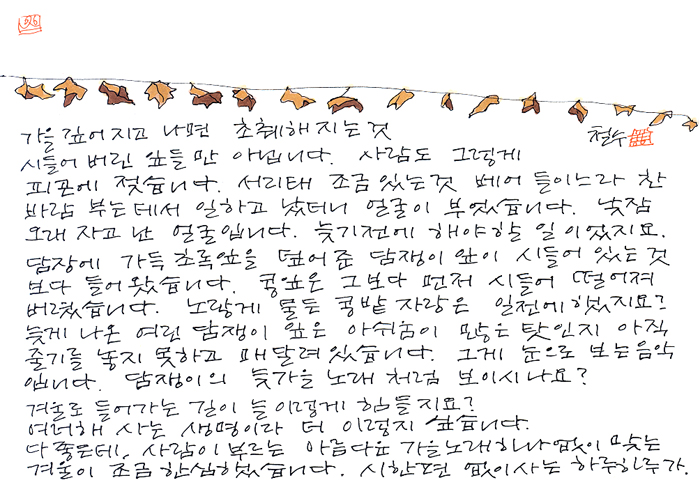 가을 깊어지고 나면 초췌해지는 것
철수
시들어 버린 잎들만 아닙니다. 사람도 그렇게
피곤에 젖습니다. 서리태 조금 있는 것 베어 들이느라 찬
바람 부는 데서 일하고 났더니 얼굴이 부었습니다. 낮잠
오래 자고 난 얼굴입니다. 늦기전에 해야할 일이었지요.
담장에 가득 초록잎을 덮어 준 담쟁이 잎이 시들어 있는 것
보다 들어왔습니다. 콩잎은 그보다 먼저 시들어 떨어져
버렸습니다. 노랗게 물든 콩밭 자랑은 일전에 했지요?
늦게 나온 여린 담쟁이 잎은 아쉬움이 많은 탓인지 아직
줄기를 놓지 못하고 매달려 있습니다. 그게 눈으로 보는 음악
입니다. 담쟁이의 늦가을 노래처럼 보이시나요?
겨울로 들어가는 길이 늘 이렇게 힘들지요?
여러해 사는 생명이라 더 이렇지 싶습니다.
다 좋은데, 사람이 부르는 아름다운 가을노래 하나 없이 맞는
겨울이 조금 한심했습니다. 시 한편 없이 사는 하루하루가.